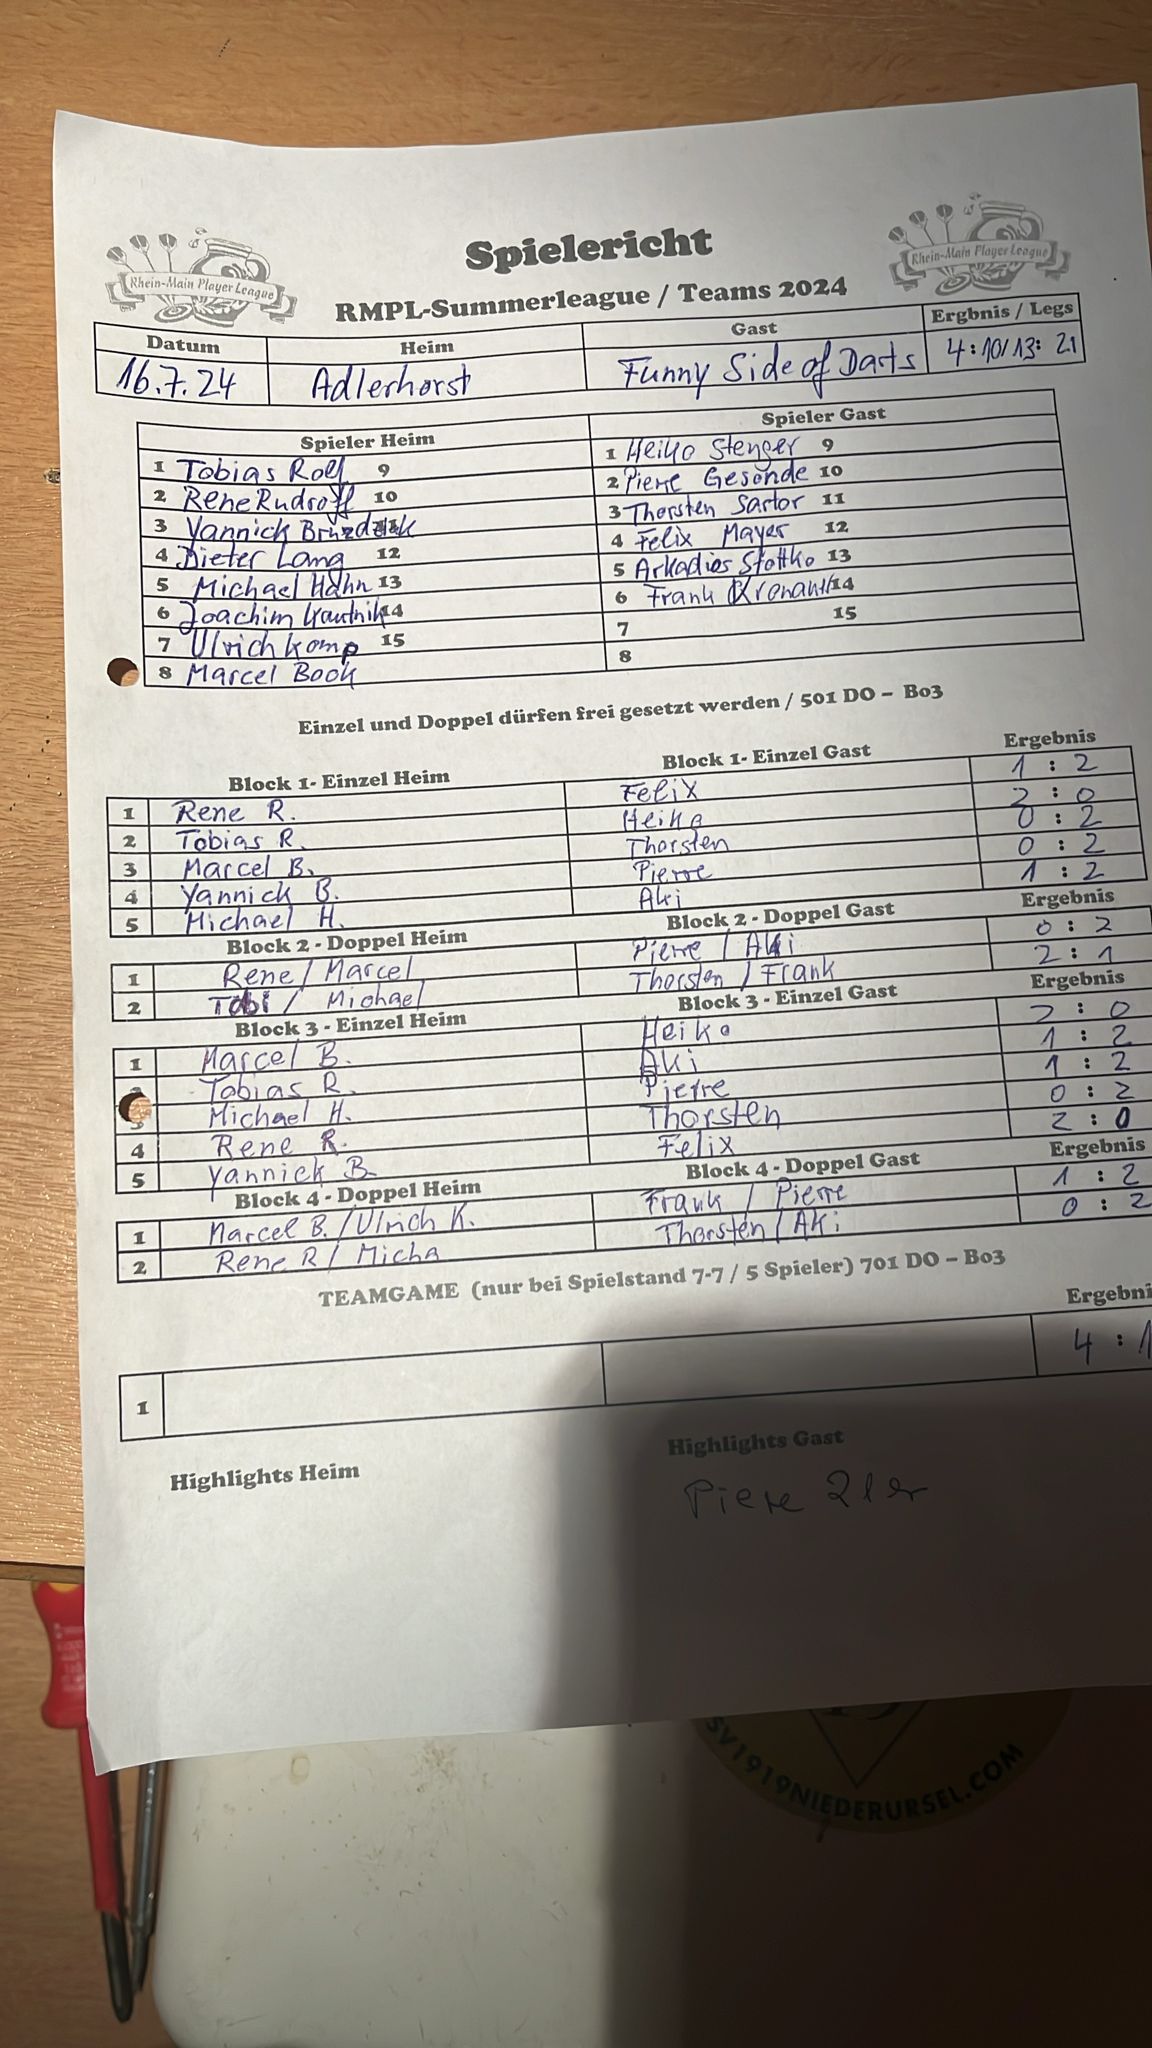 Spielericht
Rhein-Main Player League
Rhein-Main Player League
RMPL-Summerleague / Teams 2024
Datum Heim Gast Ergbnis / Legs
16.7.24 Adlerhorst Funny Side of Darts 4:10/13:21
Spieler Heim Spieler Gast
1 Tobias Roll 9 1 Heiko Stenger 9
2 Rene Rudroff 10 2 Pierre Gesonde 10
3 Yannick 3 Thorsten Sartor 11
4 Dieter Lang 12 4 Felix Mayer 12
5 Michael Hahn 13 5 Arkadios Stottko 13
6 Joachim 14 6 Frank 14
7 Ulrich Komp 15 7 15
8 Marcel Book 8
Einzel und Doppel dürfen frei gesetzt werden / 501 DO – Bo3
Block 1- Einzel Heim Block 1- Einzel Gast Ergebnis
1 Rene R. Felix 1 : 2
2 Tobias R. Heiko 2 : 0
3 Marcel B. Thorsten 0 : 2
4 Yannick B. Pierre 0 : 2
5 Michael H. Aki 1 : 2
Block 2 - Doppel Heim Block 2 - Doppel Gast Ergebnis
1 Rene / Marcel Pierre / Aki 0 : 2
2 Tobi / Michael Thorsten / Frank 2 : 1
Block 3 - Einzel Heim Block 3 - Einzel Gast Ergebnis
1 Marcel B. Heiko 2 : 0
Tobias R. Aki 1 : 2
Michael H. Pierre 1 : 2
4 Rene R. Thorsten 0 : 2
5 Yannick B. Felix 2 : 0
Block 4 - Doppel Heim Block 4 - Doppel Gast Ergebnis
1 Marcel B. / Ulrich K. Frank / Pierre 1 : 2
2 Rene R / Micha Thorsten / Aki 0 : 2
TEAMGAME (nur bei Spielstand 7-7 / 5 Spieler) 701 DO – Bo3
Ergebni
1 4 : 1
Highlights Heim Highlights Gast
Piere 21er
SV1919NIEDERURSEL.COM